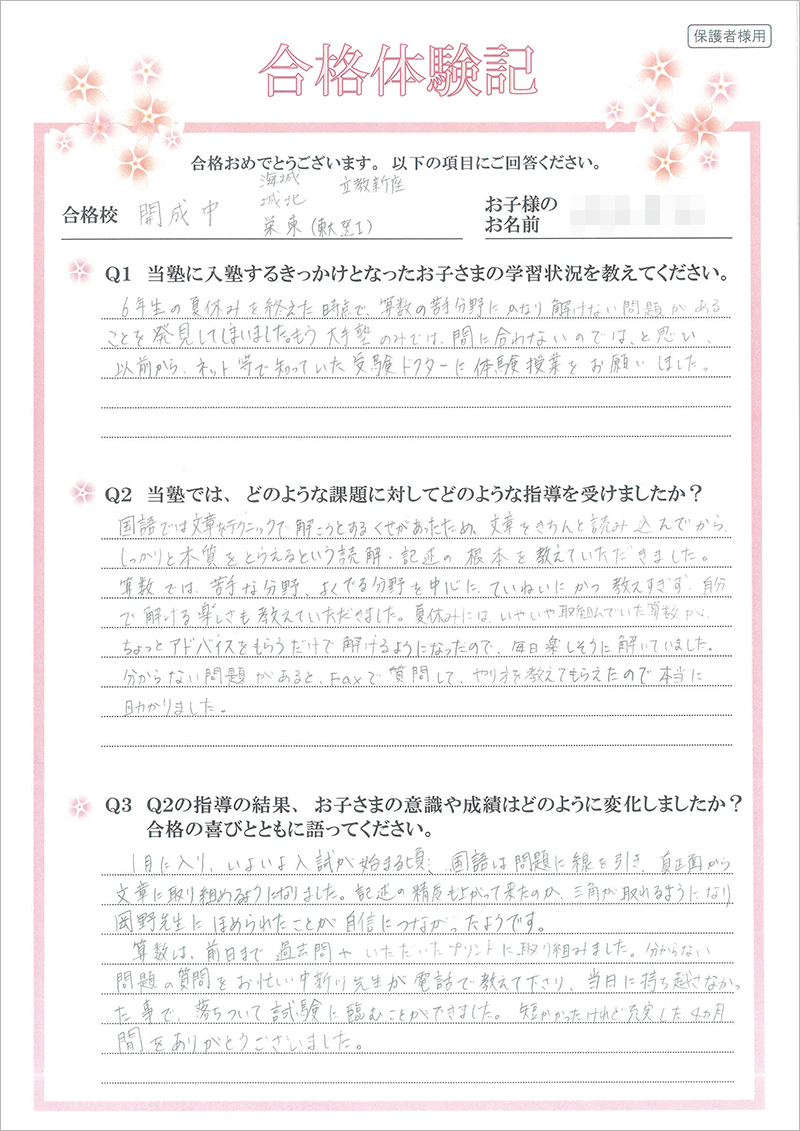 保護者様用
合格体験記
合格おめでとうございます。以下の項目にご回答ください。
合格校 開成中 海城 城北 栄東(東大選Ⅰ) 立教新座
お子様の
お名前
Q1 当塾に入塾するきっかけとなったお子さまの学習状況を教えてください。
6年生の夏休みを終えた時点で、算数の苦手分野にかなり解けない問題がある
ことを発見してしまいました。もう大手塾のみでは、間に合わないのでは、と思い、
以前から、ネット等で知っていた受験ドクターに体験授業をお願いしました。
Q2 当塾では、どのような課題に対してどのような指導を受けましたか？
国語では文章をテクニックで解こうとするくせがあったため、文章をきちんと読み込んでから、
しっかりと本質をとらえるという読解・記述の根本を教えていただきました。
算数では、苦手な分野、よくでる分野を中心に、ていねいにかつ教えすぎず、自分
で解ける楽しさも教えていただきました。夏休みには、いやいや取組んでいた算数が、
ちょっとアドバイスをもらうだけで解けるようになったので、毎日楽しそうに解いていました。
分からない問題があると、Faxで質問して、やり方を教えてもらえたので本当に
助かりました。
Q3 Q2の指導の結果、お子さまの意識や成績はどのように変化しましたか？
合格の喜びとともに語ってください。
1月に入り、いよいよ入試が始まる頃、国語は問題に線を引き、真正面から
文章に取り組めるようになりました。記述の精度も上がって来たのか、三角が取れるようになり
岡野先生にほめられたことが自信につながったようです。
算数は、前日まで過去問や いただいたプリントに取り組みました。分からない
問題の質問をお忙しい中新川先生が電話で教えて下さり、当日に持ち越さなかっ
た事で、落ちついて試験に臨むことができました。短かかったけれど充実した4ヵ月
間をありがとうございました。